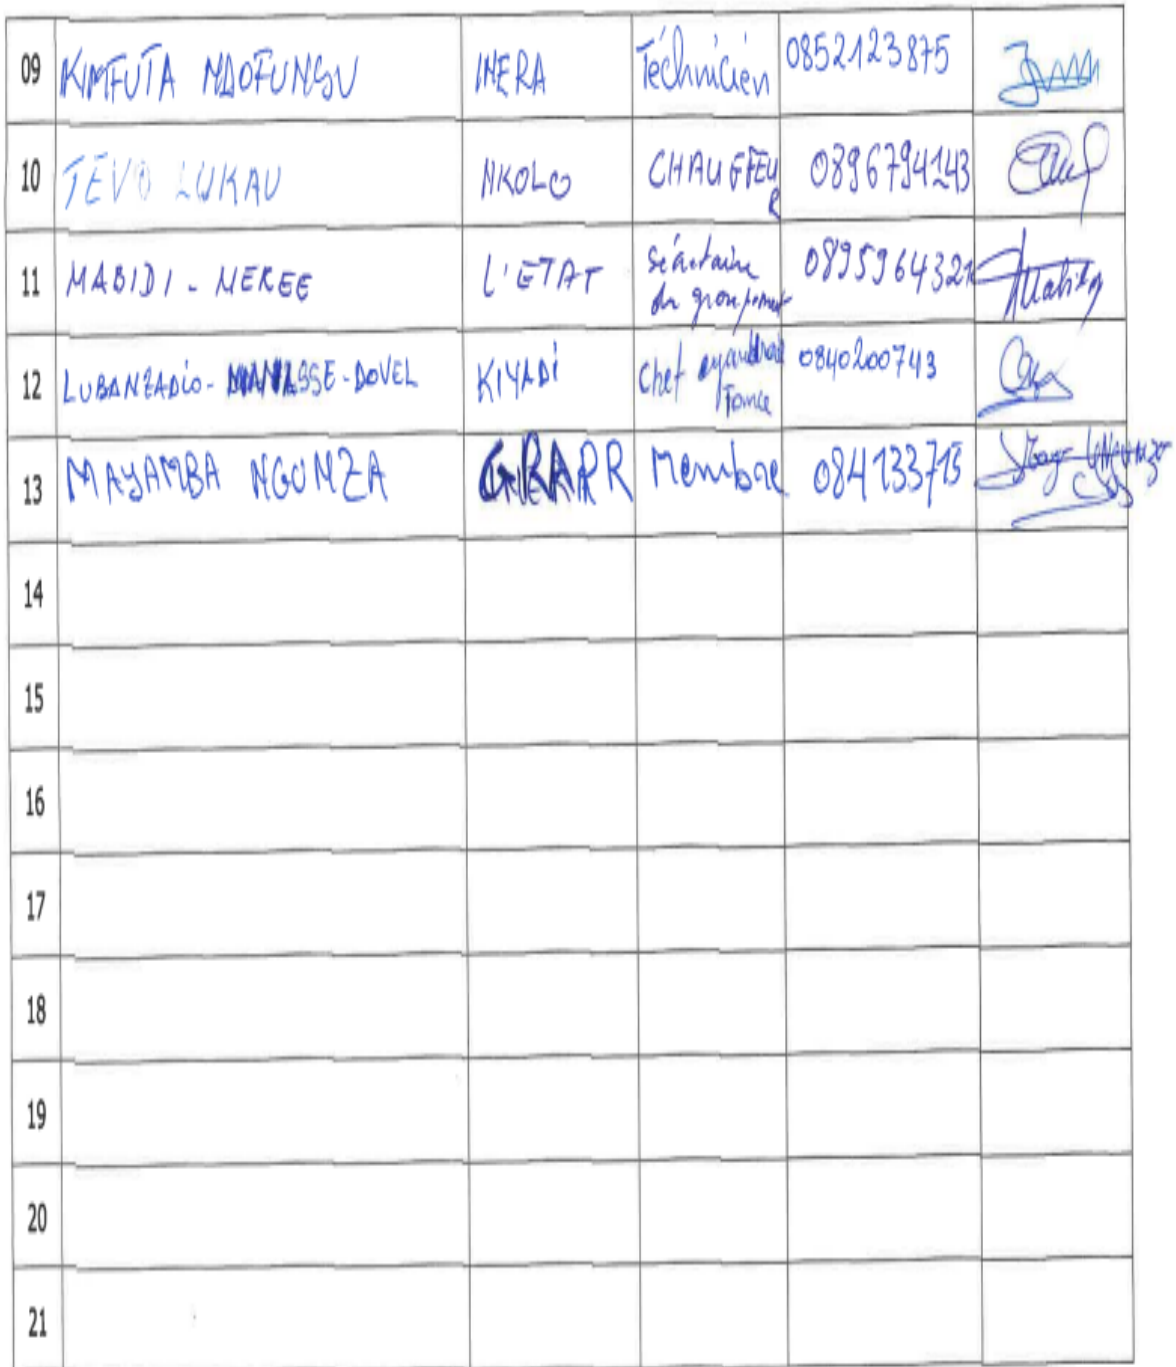 09 KIMFUTA NDOFUNSU INERA Téchnicien 0852123875
10 TEVO LUKAU NKOLO CHAUFFEUR 0896794143
11 MABIDI - NEREE L'ETAT Sécrétaire du groupement 0895964321
12 LUBANZADIO - MANASSE - DOVEL KIYADI Chef 0840200743
13 MAYAMBA NGUNZA GRAPR Membre 084133715
14
15
16
17
18
19
20
21